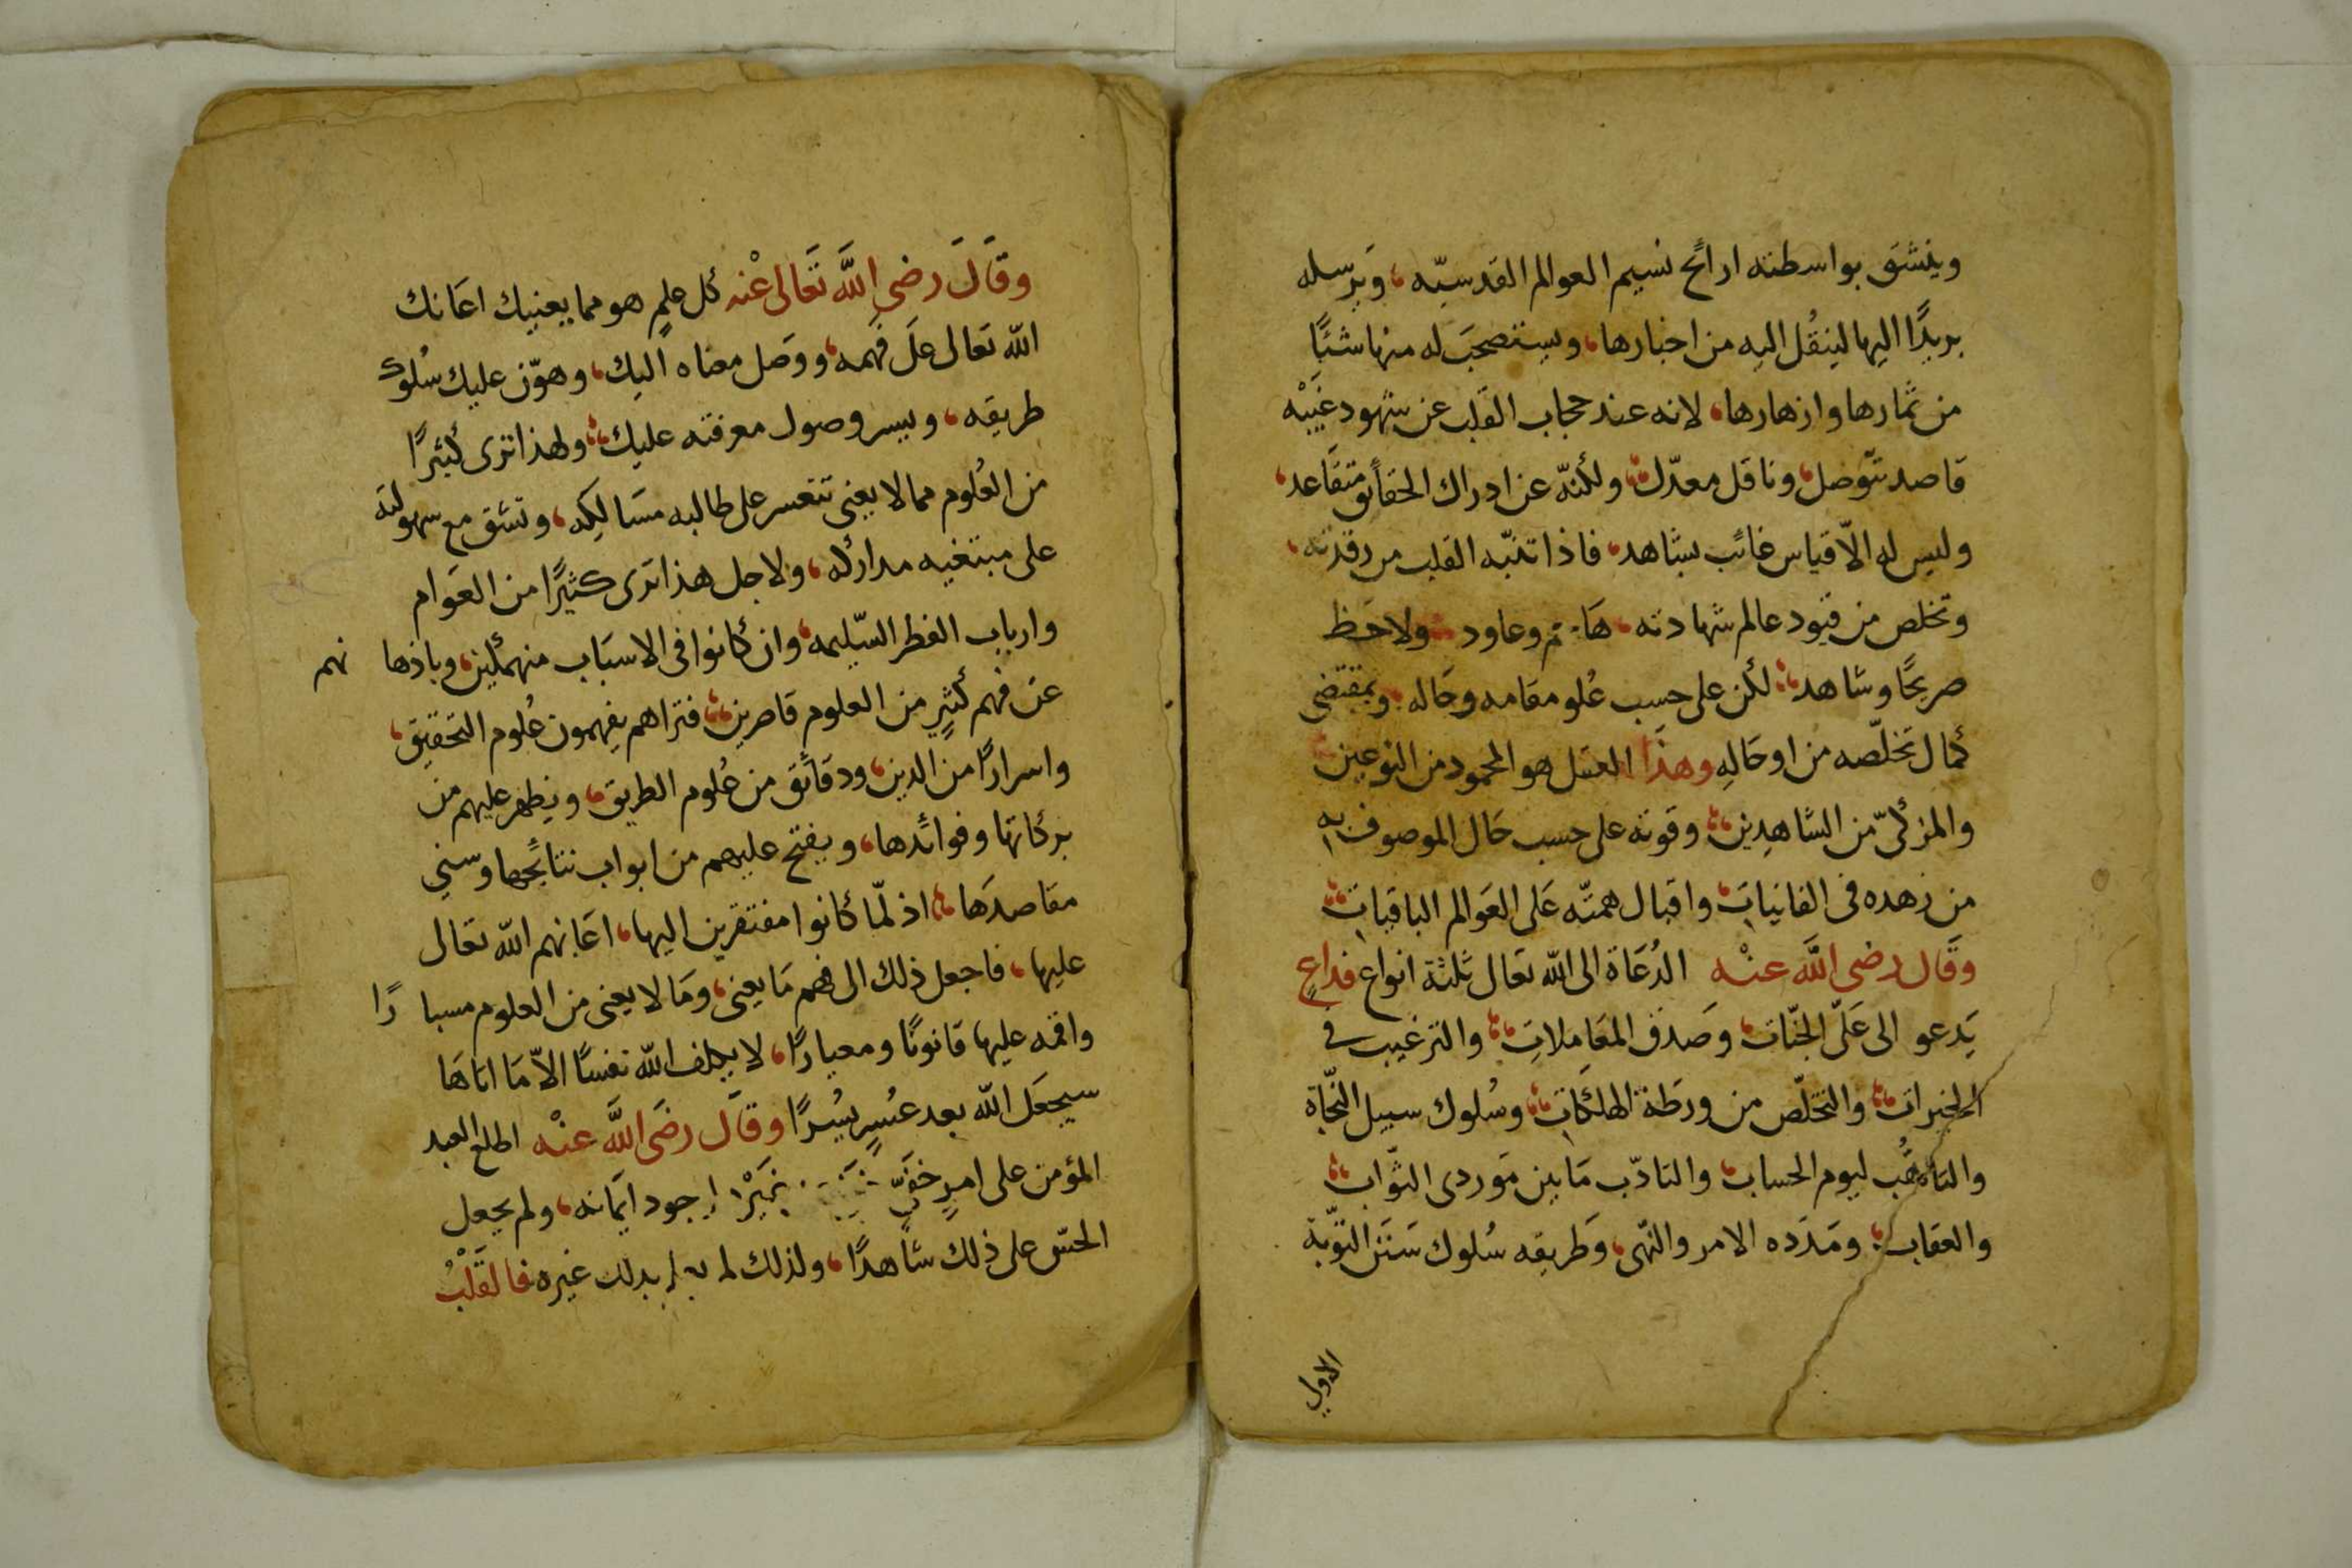 وينشق بواسطته ارائح نسيم العوالم القدسيّه، وَيرسله
بريدًا اليها لينقُل اليه من اخبارها، ويستصحبَ له منها شئًا
من ثمارها وازهارها، لانه عند حجاب القلب عن شهود غَيْبِه
قاصد متوصل، وناقل معدّل، ولكنّه عن ادراك الحقائق متقَاعد،
وليس له الّا قياس غائب بشاهد، فاذا تنبّه القلب من رقدته،
وتخلص من قيود عالم شهادته، وعاود ولاحَظ
صريحًا وشاهد، لكن على حسب عُلو مقامه وحَاله، وبمقتضى
كمال تخلّصه من اوحَالِهِ وهذا العقل هو المحمود من النوعين
والمزكّى من الشاهدِين، وقوته على حسب حَال الموصوف به
من زهده فى الفانيات، واقبال همتّه عَلى العَوالم الباقيات،
وَقَال رضى اللَّه عنْه الدُعَاة الى اللّه تعَالى ثلثة انواع فداعٍ
يَدعو الى عَلىّ الجنّات، وصَدق المعَاملاتِ، والترغيب فى
الخيرات، والتخلّص من ورطَة الهلكَاتِ، وسُلوك سبيل النّجَاة
والتاهُّب ليوم الحساب، والتادّب مَا بين مَوردى الثّواب،
والعقاب، ومَدَده الامر والنّهى، وَطريقه سُلوك سَنَن التّوبَة
الاولى
وَقَالَ رضى اللَّه تعَالى عْنه كل علمٍ هو مما يعنيك اعَانك
اللّه تعَالى علَى فهمه، ووَصل معناه اليك، وهوّن عليك سُلوك
طريقه، ويسر وصول معرفته عليك، ولهذا ترى كثيرًا
من العُلوم مما لا يعنى تتعسر على طالبه مسَالِكه، وتشق مع سهولته
على مبتغيه مداركه، ولاجل هذا ترى كثيرًا من العَوام
وارباب الفطر السّليمه، وان كانوا فى الاسبَاب منهمكين، وباذهانهم
عن فهم كثيرٍ من العلوم قاصرين، فتراهم يفهمون عُلوم التحقيق،
واسرارًا من الدين، ودقائق من عُلوم الطريق، ويظهر عليهم من
بركاتها وفوائدها، ويفتح عليهم من ابواب نتائجها وسنى
مقاصدَها، اذ لمّا كانوا مفتقرين اليها، اعَانهم اللّه تعَالى
عليها، فاجعل ذلك الى فهم مَا يعنى، ومَا لا يعنى من العلوم مسبارًا
واقمه عليها قانونًا ومعيارًا، لا يكلف اللّه نفسًا الاّ مَا اتاهَا
سيجعَل اللّه بعد عُسرٍ يُسرًا وقَال رضَى اللَّه عنْه اطلع العبد
المؤمن على امرٍ خفىّ وجود ايمَانه، ولم يجعل
الحسّ على ذلك شاهدًا، ولذلك لم بذلك غيره فالقَلْبُ